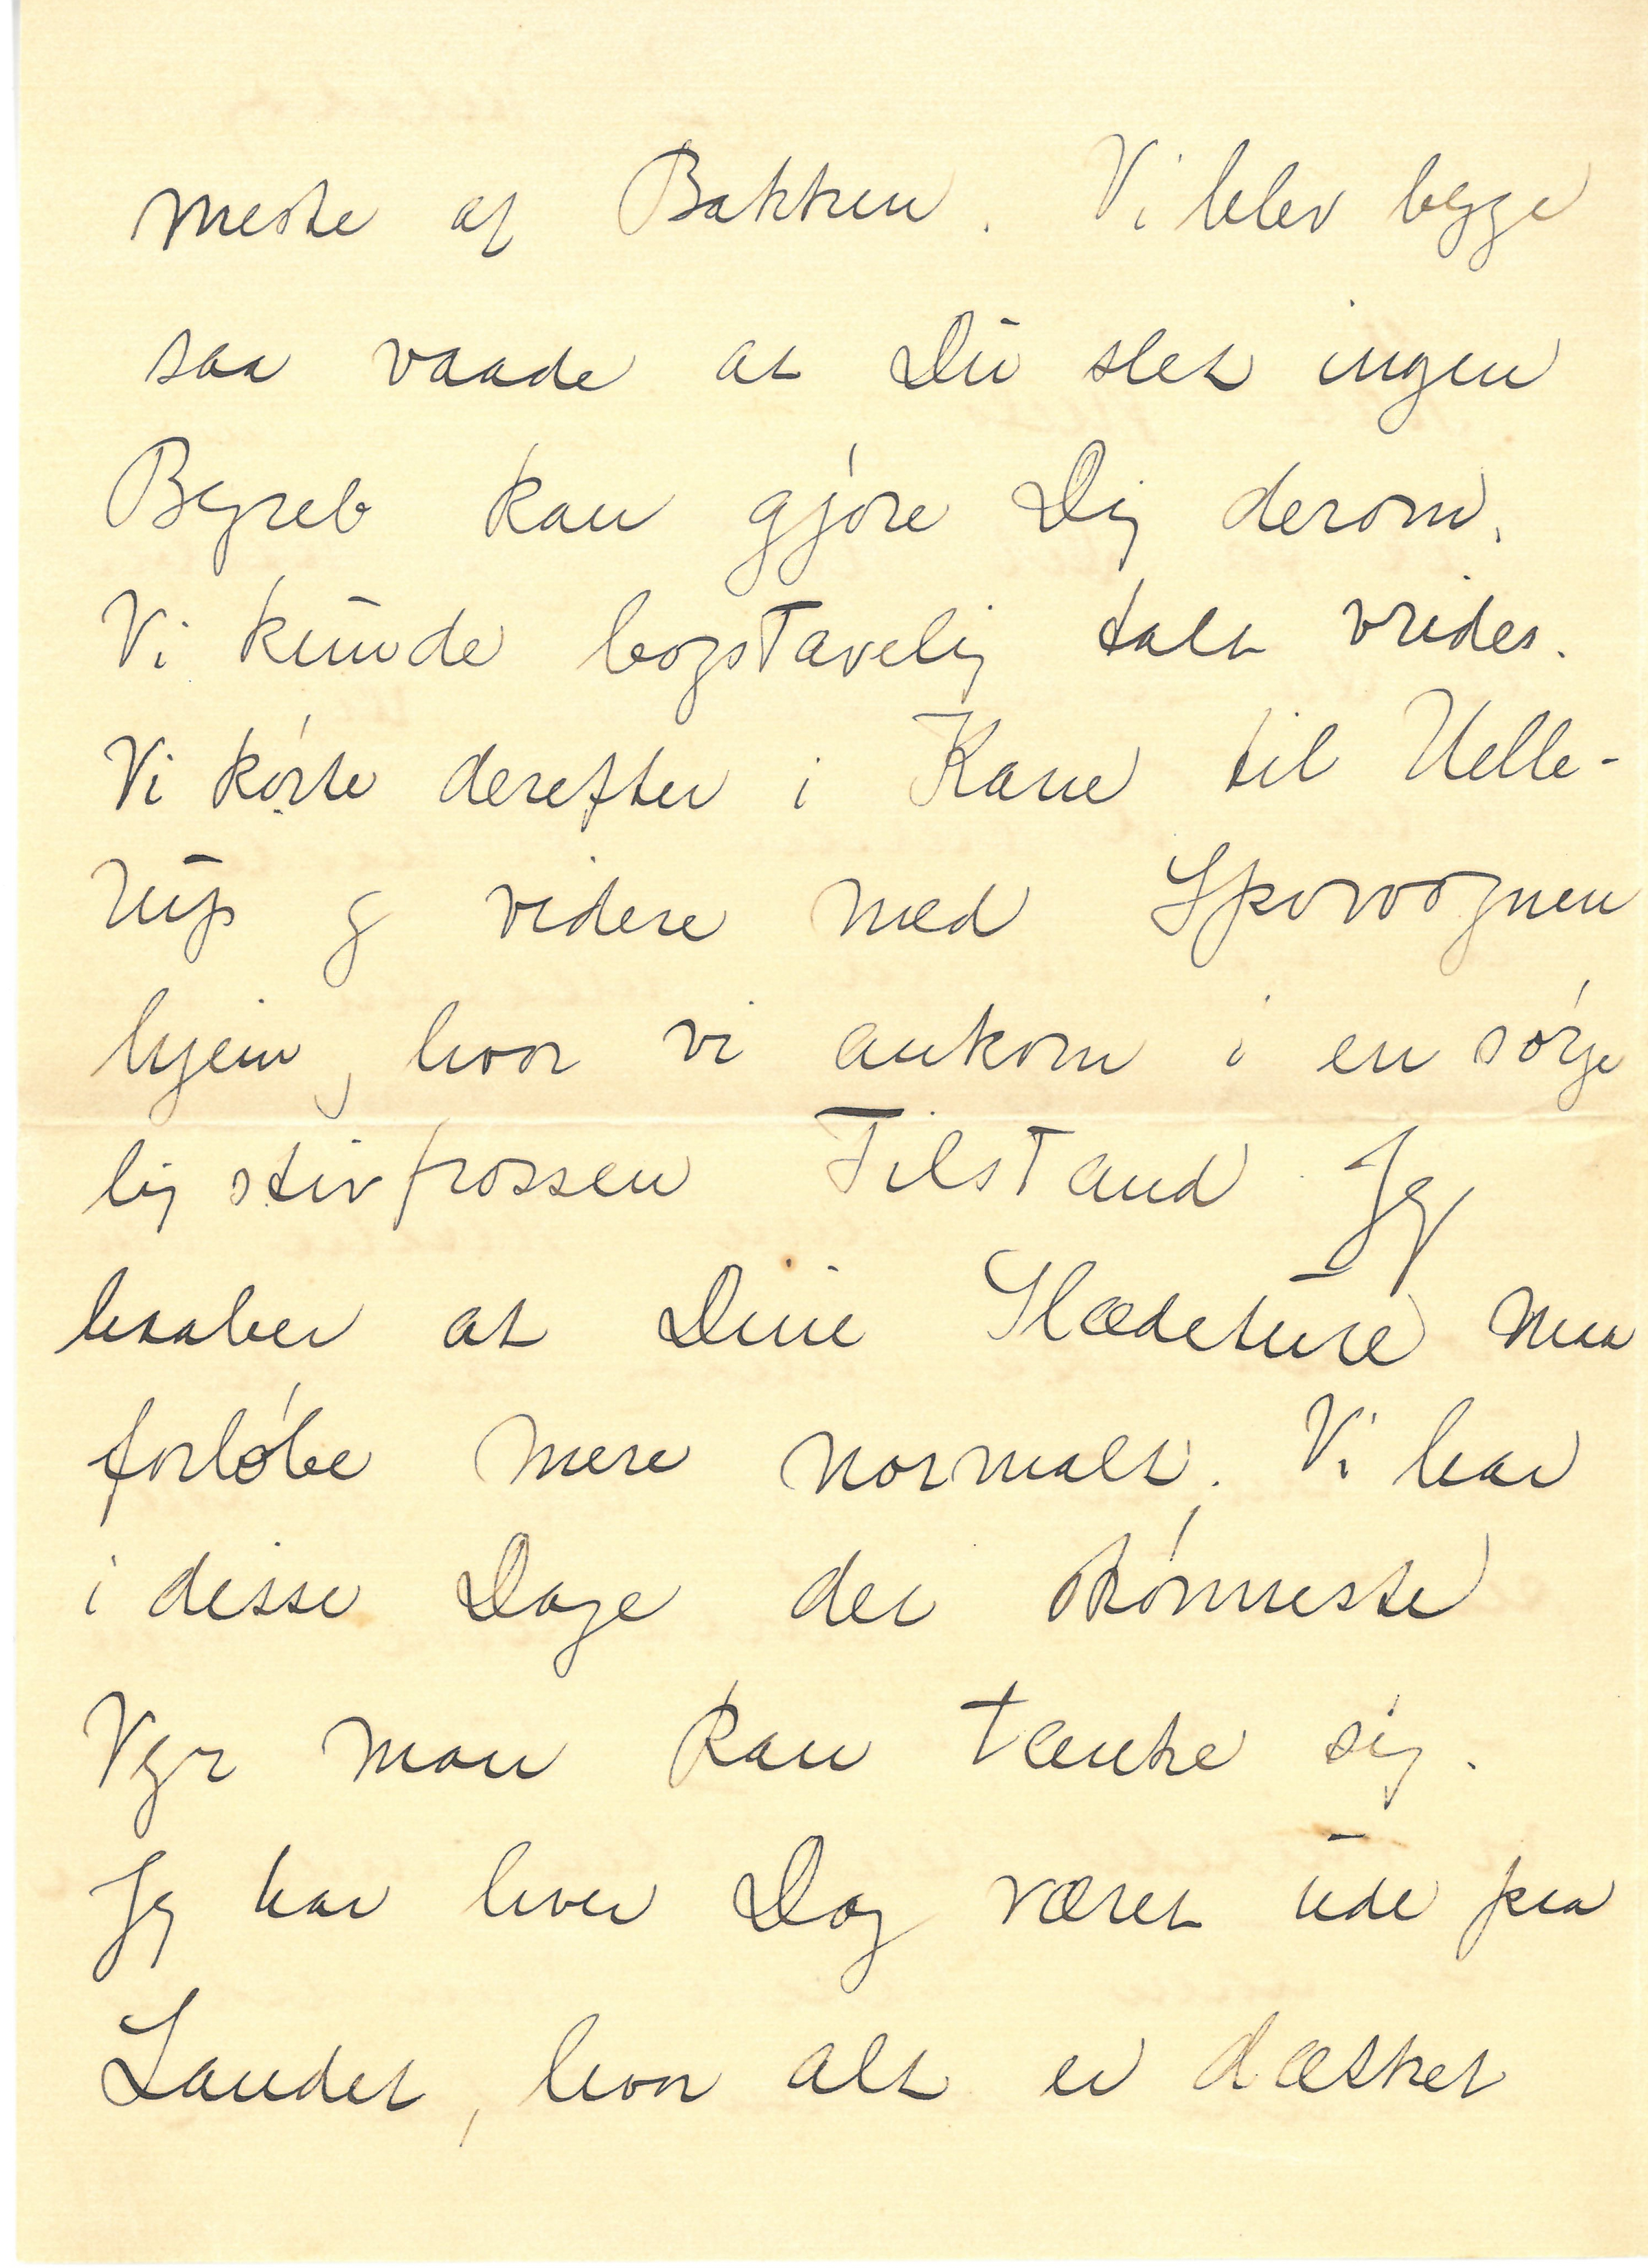 meste af Bakken. Vi blev begge
saa vaade at Du slet ingen
Begreb kan gjóre Dig derom.
Vi kunde bogstavelig talt vrides.
Vi kórte derefter i Kane til Helle-
rup og videre med Sporvognen
hjem, hvor vi ankom i en sórge
lig stivfrossen Tilstand. Jeg
haaber at Dine Slædeture maa
forlóbe mere normalt. Vi har
i disse Dage det skónneste
Vejr man kan tænke sig.
Jeg har hver Dag været ude paa
Landet, hvor alt er dækket